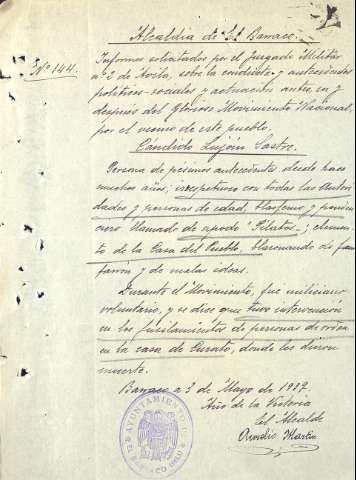 Alcaldía de El Barraco.
Nº 144.
Informes solicitados por el Juzgado Militar
nº 2 de Avila, sobre la conducta y antecedentes
políticos-sociales y actuación antes, en y
después del Glorioso Movimiento Nacional,
por el vecino de este pueblo.
Cándido Lujan Sastre.
Persona de pésimos antecedentes, desde hace
muchos años, irrespetuoso con todas las Autori
dades y personas de edad, blasfemo y penden
ciero llamado de apodo "Pilatos"; elemen-
to de la Casa del Pueblo, blasonando de fan
farrón y de malas ideas.
Durante el Movimiento, fue miliciano
voluntario, y se dice que tuvo intervención
en los fusilamientos de personas de
en la casa de Curato, donde les dieron
muerte.
Barraco a 3 de Mayo de 1937
Año de la Victoria
El Alcalde
Martín
AYUNTAMIENTO
BARRACO